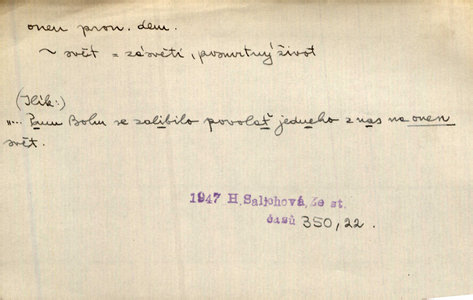 onen pron. dem.
~ svět = zásvětí, posmrtný život
(Ilík:)
"... Pánu Bohu se zalíbilo povolať jedneho z nas na onen
svět.
1947 H. Saljohová, Ze st.
časů 350, 22.